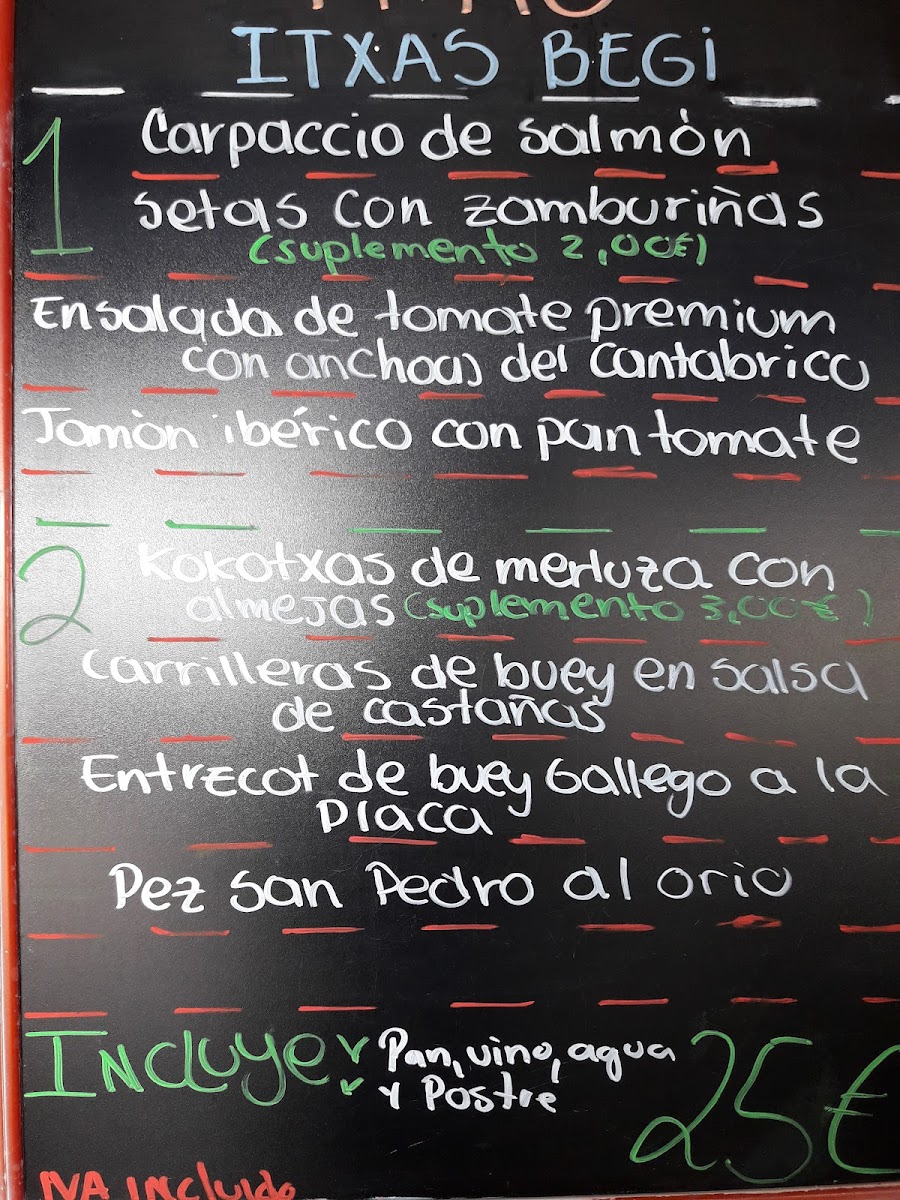 ITXAS BEGi
1
Carpaccio de salmòn
setas con zamburiñas
(suplemento 2,00€)
Ensalada de tomate premium
con anchoas del cantabrico
Jamòn ibérico con pan tomate
2
Kokotxas de merluza con
almejas (suplemento 3,00€)
Carrilleras de buey en salsa
de castañas
Entrecot de buey Gallego a la
placa
Pez san Pedro al orio
Incluye Pan, vino, agua
y Postre
25€
IVA incluido